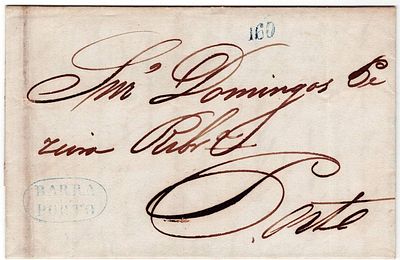 160
Snr Domingos Pe
reira Ribro
Porto
BARRA
PORTO